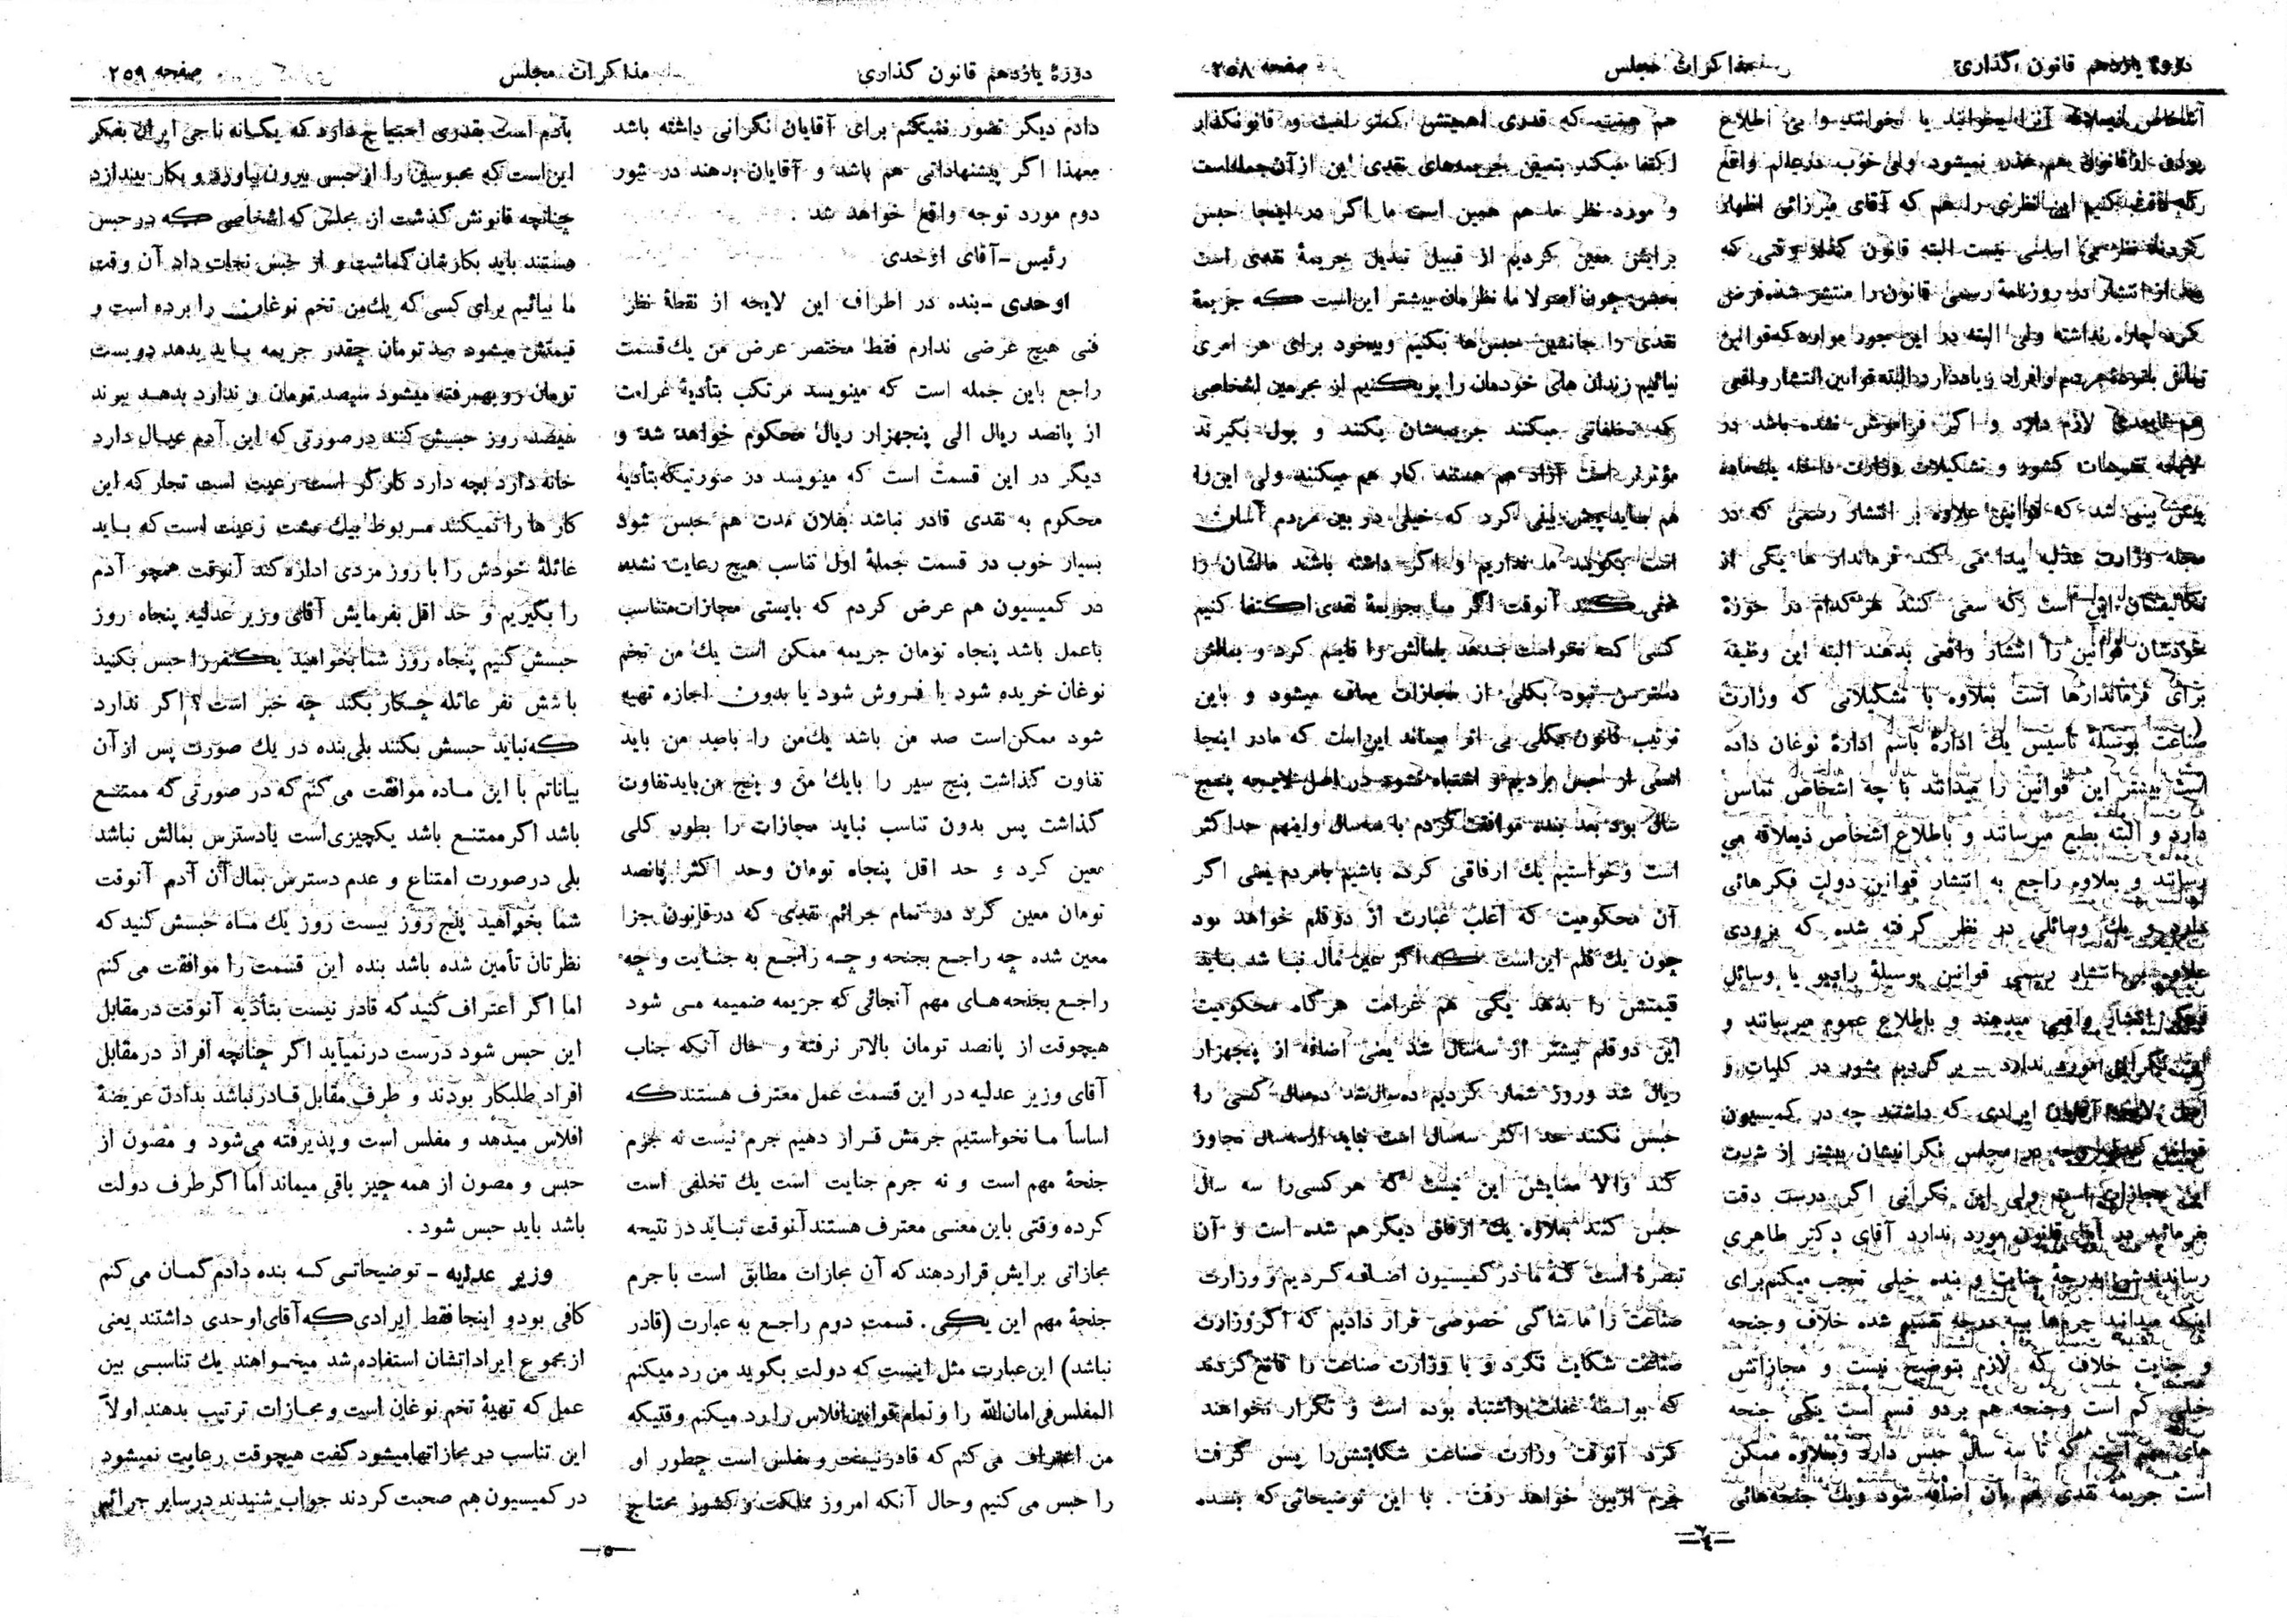 دورهٔ یازدهم قانون گذاری
مذاکرات مجلس
صفحه ۲۵۸
اشخاص آنرا بخوانند یا نخوانند و بی اطلاع
بودن از قانون هم عذر نمیشود ولی خوب در عالم واقع
که دقت کنیم این نظری را هم که آقای میرزائی اظهار
کردند نظر بی اساسی نیست البته قانون گذار وقتی که
بعد از انتشار در روزنامهٔ رسمی قانون را منتشر شده فرض
کرد چاره نداشته ولی البته در این جور موارد که قوانین
تماس با تودهٔ مردم و افراد زیاد دارد البته قوانین انتشار واقعی
هم لازم دارد و اگر فراموش نشده باشد در
لایحه تقسیمات کشور و تشکیلات وزارت داخله یک ماده
پیش بینی شد که قوانین علاوه بر انتشار رسمی که در
مجله وزارت عدلیه پیدا می کند فرماندار ها یکی از
تکالیفشان این است که سعی کنند هر کدام در حوزهٔ
خودشان قوانین را انتشار واقعی بدهند البته این وظیفه
برای فرماندارها است بعلاوه با تشکیلاتی که وزارت
صناعت بوسیلهٔ تأسیس یک ادارهٔ باسم ادارهٔ نوغان داده
است بیشتر این قوانین را میدانند با چه اشخاص تماس
دارد و البته بطبع میرسانند و باطلاع اشخاص ذیعلاقه می
رسانند و بعلاوه راجع به انتشار قوانین دولت فکرهائی
دارد و یک وسائلی در نظر گرفته شده که بزودی
علاوه بر انتشار رسمی قوانین بوسیلهٔ رادیو یا وسائل
دیگر انتشار واقعی میدهند و باطلاع عموم میرسانند و
این نگرانی مورد ندارد ـ برگردیم بشور در کلیات و
اصل لایحه آقایان ایرادی که داشتند چه در کمیسیون
قوانین عدلیه و چه در مجلس نگرانیشان بیشتر از شدت
این مجازات است ولی این نگرانی اگر درست دقت
بفرمائید در قانون مورد ندارد آقای دکتر طاهری
رساندندش بدرجهٔ جنایت و بنده خیلی تعجب میکنم برای
اینکه میدانید جرمها بسه درجه تقسیم شده خلاف و جنحه
و جنایت خلاف که لازم بتوضیح نیست و مجازاتش
خیلی کم است و جنحه هم بردو قسم است یکی جنحه
های مهم است که تا سه سال حبس دارد و بعلاوه ممکن
است جریمهٔ نقدی هم بان اضافه شود و یک جنحه‌هائی
هم هست که قدری اهمیتش کمتر است و قانونگذار
اکتفا میکند بتعیین جریمه‌های نقدی این از آن جمله است
و مورد نظر ما هم همین است ما اگر در اینجا حبس
برایش معین کردیم از قبیل تبدیل جریمهٔ نقدی است
بحبس چون اصولا ما نظرمان بیشتر این است که جریمهٔ
نقدی را جانشین حبس‌ها بکنیم و بیخود برای هر امری
نیائیم زندان های خودمان را پر بکنیم از مجرمین اشخاصی
که تخلفاتی میکنند جریمه‌شان بکنند و پول بگیرند
مؤثرتر است آزاد هم هستند کار هم میکنند ولی این را
هم باید پیش بینی کرد که خیلی در بین مردم آسان
است بگویند ما نداریم و اگر داشته باشند مالشان را
مخفی کنند آنوقت اگر ما بجریمهٔ نقدی اکتفا کنیم
کسی که نخواست بدهد یا مالش را قایم کرد و بمالش
دسترس نبود بکلی از مجازات معاف میشود و باین
ترتیب قانون بکلی بی اثر میماند این است که ما در اینجا
اسمی از حبس بردیم و اشتباه نشود در اصل لایحه پنج
سال بود بعد بنده موافقت کردم با سه سال و اینهم حداکثر
است و خواستیم یک ارفاقی کرده باشیم بامردم یعنی اگر
آن محکومیت که اغلب عبارت از دو قلم خواهد بود
چون یک قلم این است که اگر عین مال نباشد باید
قیمتش را بدهد یکی هم غرامت هرگاه محکومیت
این دو قلم بیشتر از سه سال شد یعنی اضافه از پنجهزار
ریال شد و روز شمار کردیم ده سال شد ده سال کسی را
حبس نکنند حد اکثر سه سال است نباید از سه سال تجاوز
کند والا معنایش این نیست که هر کسی را سه سال
حبس کنند بعلاوه یک ارفاق دیگر هم شده است و آن
تبصرهٔ است که ما در کمیسیون اضافه کردیم و وزارت
صناعت را ما شاکی خصوصی قرار دادیم که اگر وزارت
صناعت شکایت نکرد و یا وزارت صناعت را قانع کردند
که بواسطهٔ غفلت و اشتباه بوده است و تکرار نخواهند
کرد آنوقت وزارت صناعت شکایتش را پس گرفت
جرم ازبین خواهد رفت . با این توضیحاتی که بنده
ـ۴ـ
دورهٔ یازدهم قانون گذاری
مذاکرات مجلس
صفحه ۲۵۹
دادم دیگر تصور نمیکنم برای آقایان نگرانی داشته باشد
معهذا اگر پیشنهاداتی هم باشد و آقایان بدهند در شور
دوم مورد توجه واقع خواهد شد .
رئیس ـ آقای اوحدی
اوحدی ـ بنده در اطراف این لایحه از نقطهٔ نظر
فنی هیچ عرضی ندارم فقط مختصر عرض من یک قسمت
راجع باین جمله است که مینویسد مرتکب بتأدیهٔ غرامت
از پانصد ریال الی پنجهزار ریال محکوم خواهد شد و
دیگر در این قسمت است که مینویسد در صورتیکه بتأدیه
محکوم به نقدی قادر نباشد بفلان مدت هم حبس شود
بسیار خوب در قسمت جملهٔ اول تناسب هیچ رعایت نشده
در کمیسیون هم عرض کردم که بایستی مجازات متناسب
باعمل باشد پنجاه تومان جریمه ممکن است یک من تخم
نوغان خریده شود یا فروش شود یا بدون اجازه تهیه
شود ممکن است صد من باشد یک من را باصد من باید
تفاوت گذاشت پنج سیر را بایک من و پنج من باید تفاوت
گذاشت پس بدون تناسب نباید مجازات را بطور کلی
معین کرد و حد اقل پنجاه تومان وحد اکثر پانصد
تومان معین کرد در تمام جرائم نقدی که در قانون جزا
معین شده چه راجع بجنحه و چه راجع به جنایت و چه
راجع بجنحه‌های مهم آنجائی که جریمه ضمیمه می شود
هیچوقت از پانصد تومان بالاتر نرفته و حال آنکه جناب
آقای وزیر عدلیه در این قسمت عمل معترف هستند که
اساساً ما نخواستیم جرمش قرار دهیم جرم نیست نه جرم
جنحهٔ مهم است و نه جرم جنایت است یک تخلفی است
کرده وقتی باین معنی معترف هستند آنوقت نباید در نتیجه
مجازاتی برایش قرار دهند که آن مجازات مطابق است با جرم
جنحهٔ مهم این یکی . قسمت دوم راجع به عبارت (قادر
نباشد) این عبارت مثل اینست که دولت بگوید من رد میکنم
المفلس فی امان‌الله را و تمام قوانین افلاس را رد میکنم وقتیکه
من اعتراف می کنم که قادر نیست و مفلس است چطور او
را حبس می کنیم و حال آنکه امروز مملکت و کشور محتاج
بآدم است بقدری احتیاج دارد که یگانه ناجی ایران بفکر
این است که محبوسین را از حبس بیرون بیاورد و بکار بیندازد
چنانچه قانونش گذشت از مجلس که اشخاصی که در حبس
هستند باید بکارشان گماشت و از حبس نجات داد آن وقت
ما بیائیم برای کسی که یک من تخم نوغان را برده است و
قیمتش میشود صد تومان چقدر جریمه باید بدهد دویست
تومان رویهمرفته میشود سیصد تومان و ندارد بدهد ببرند
سیصد روز حبسش کنند در صورتی که این آدم عیال دارد
خانه دارد بچه دارد کارگر است رعیت است تجار که این
کار ها را نمیکنند مربوط بیک مشت رعیت است که باید
عائلهٔ خودش را با روز مزدی اداره کند آنوقت همچو آدم
را بگیریم و حد اقل بفرمایش آقای وزیر عدلیه پنجاه روز
حبسش کنیم پنجاه روز شما بخواهید یکنفر را حبس بکنید
با شش نفر عائله چکار بکند چه خبر است؟ اگر ندارد
که نباید حبسش بکنند بلی بنده در یک صورت پس از آن
بیاناتم با این ماده موافقت می کنم که در صورتی که ممتنع
باشد اگر ممتنع باشد یکچیزی است یا دسترس بمالش نباشد
بلی در صورت امتناع و عدم دسترس بمال آن آدم آنوقت
شما بخواهید پنج روز بیست روز یک ماه حبسش کنید که
نظرتان تأمین شده باشد بنده این قسمت را موافقت می کنم
اما اگر اعتراف کنید که قادر نیست بتأدیه آنوقت در مقابل
این حبس شود درست درنمیآید اگر چنانچه افراد در مقابل
افراد طلبکار بودند و طرف مقابل قادر نباشد بدادن عریضهٔ
افلاس میدهد و مفلس است و پذیرفته می‌شود و مصون از
حبس و مصون از همه چیز باقی میماند اما اگر طرف دولت
باشد باید حبس شود .
وزیر عدلیه ـ توضیحاتی که بنده دادم گمان می کنم
کافی بود و اینجا فقط ایرادی که آقای اوحدی داشتند یعنی
از مجموع ایراداتشان استفاده شد میخواهند یک تناسبی بین
عمل که تهیهٔ تخم نوغان است و مجازات ترتیب بدهند اولاً
این تناسب در مجازاتها میشود گفت هیچوقت رعایت نمیشود
در کمیسیون هم صحبت کردند جواب شنیدند در سایر جرائم
ـ۵ـ